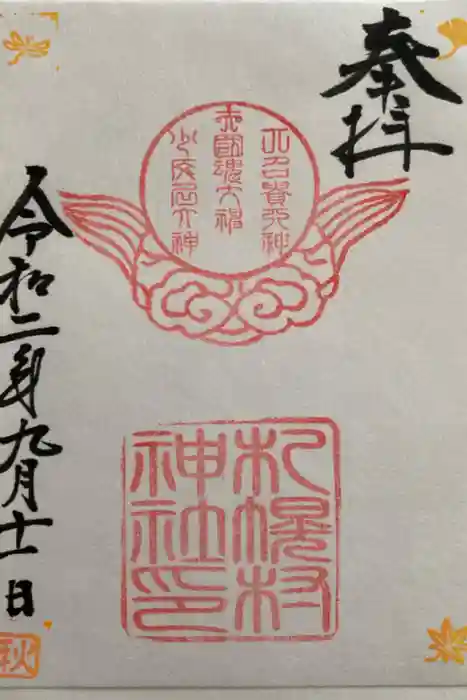 奉拝
大國魂大神
大名貴大神
少彦名大神
札幌村
神社印
令和二年九月十一日
秋